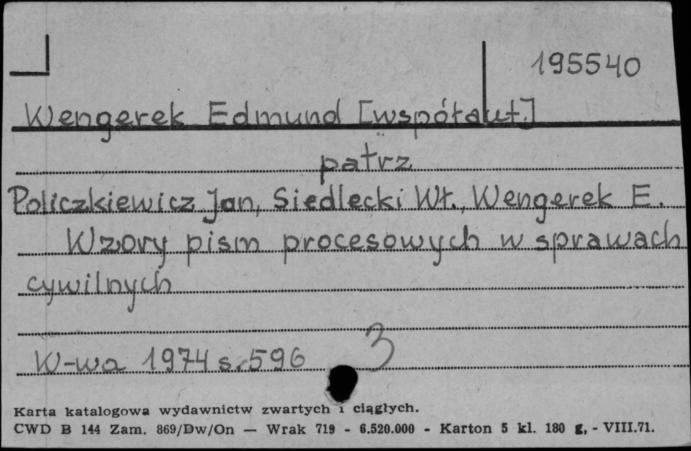 195540
Wengerek Edmund [współaut.]
patrz
Policzkiewicz Jan, Siedlecki Wł., Wengerek E.
Wzory pism procesowych w sprawach
cywilnych
W-wa 1974 s. 596 3
Karta katalogowa wydawnictw zwartych i ciągłych.
CWD B 144 Zam. 869/Dw/On — Wrak 719 - 6.520.000 - Karton 5 kl. 180 g, - VIII.71.